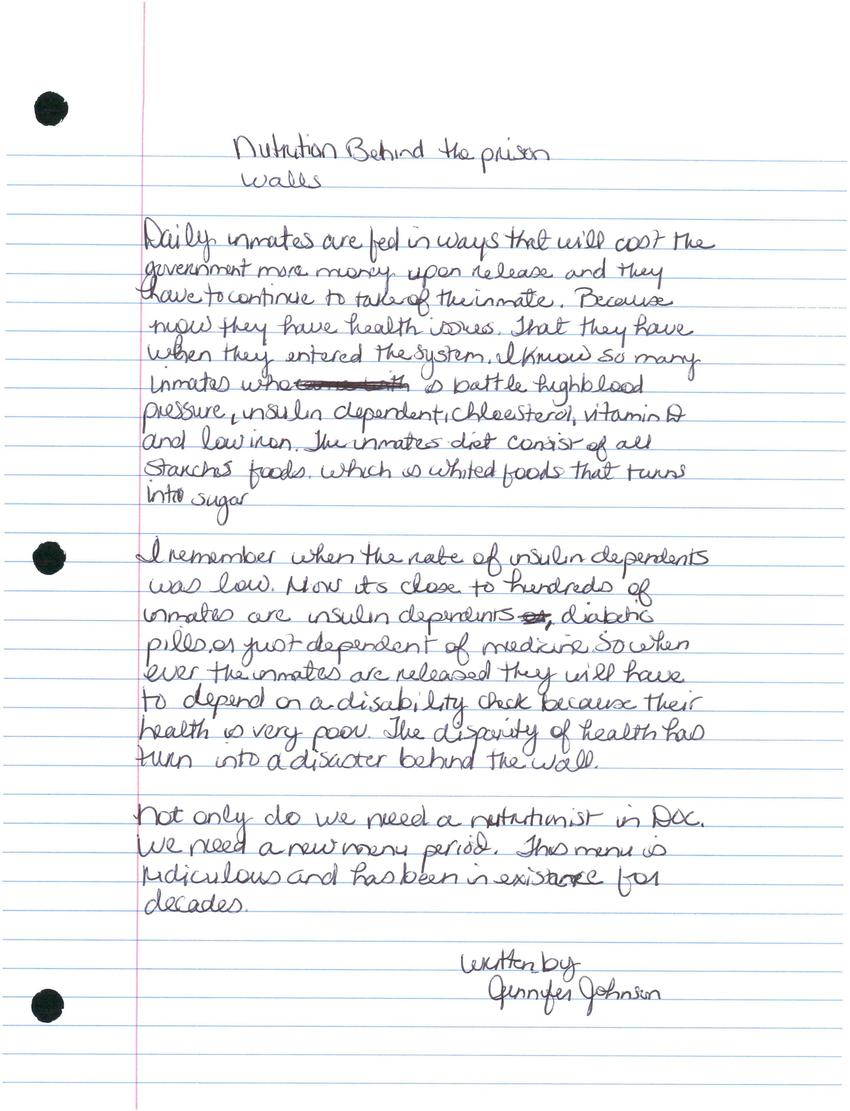 Nutrition Behind the prison
walls
Daily inmates are fed in ways that will cost the
government more money upon release and they
have to continue to take of the inmate. Because
now they have health issues. That they have
when they entered the system. I know so many
inmates who is battle highblood
pressure, insulin dependent, chloesterol, vitamin D
and low iron. The inmates diet consist of all
Starches foods. which is whited foods that turns
into sugar
I remember when the rate of insulin dependents
was low. Now its close to hundreds of
inmates are insulin dependents, diabetic
pills, or just dependent of medicine. So when
ever the inmates are released they will have
to depend on a disability check because their
health is very poor. The disparity of health has
turn into a disaster behind the wall.
Not only do we need a nutritionist in DOC.
We need a new menu period. This menu is
rediculous and has been in existance for
decades.
written by
Jennifer Johnson